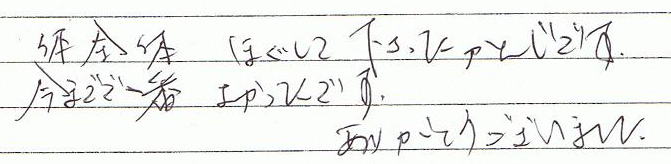 体全体 ほぐして下さったかんじです。
今までで一番 よかったです。
ありがとうございました。